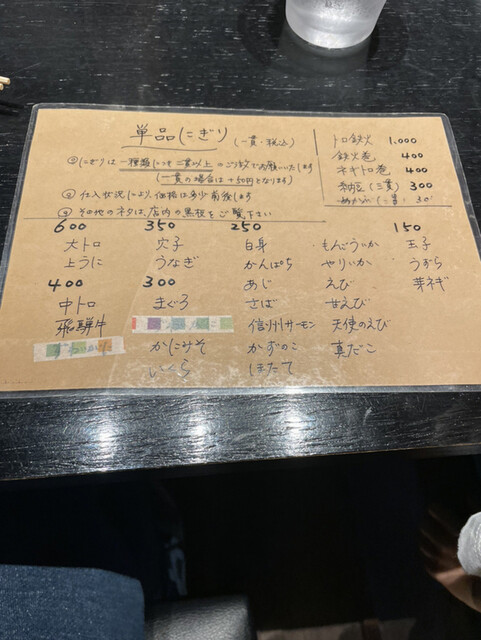 単品にぎり (一貫・税込)
①にぎりは一種類につき二貫以上のご注文でお願いいたします
(一貫の場合は+50円となります)
②仕入状況により、価格は多少前後します
③その他のネタは、店内の黒板をご覧下さい
トロ鉄火 1,000
鉄火巻 400
ネギトロ巻 400
納豆(二貫) 300
600
大トロ
上うに
400
中トロ
飛騨牛
ずわいがに
350
穴子
うなぎ
300
まぐろ
かにみそ
いくら
250
白身
かんぱち
あじ
さば
信州サーモン
かずのこ
ほたて
もんごういか
やりいか
えび
甘えび
天使のえび
真だこ
150
玉子
うずら
芽ネギ